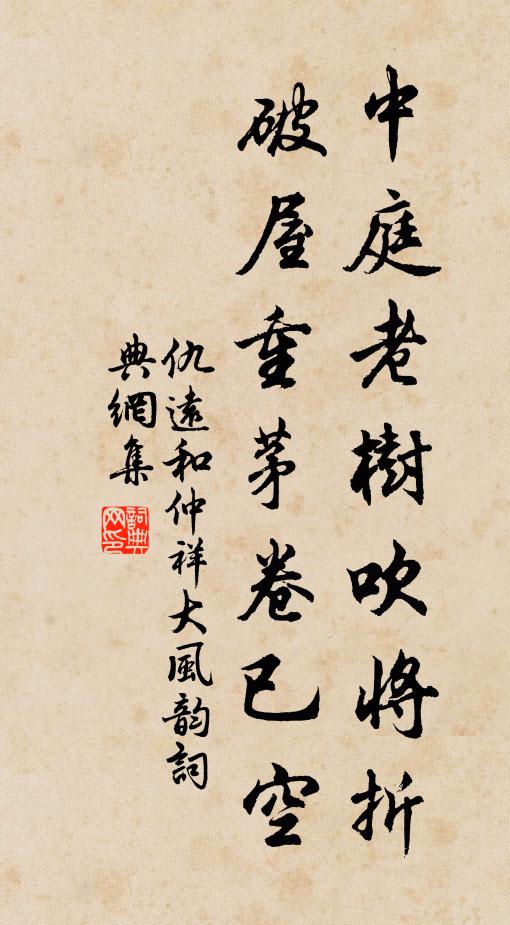 中庭老樹吹將折
破屋重茅卷已空
仇遠和仲祥大風韵詞
典網集
詞典网印